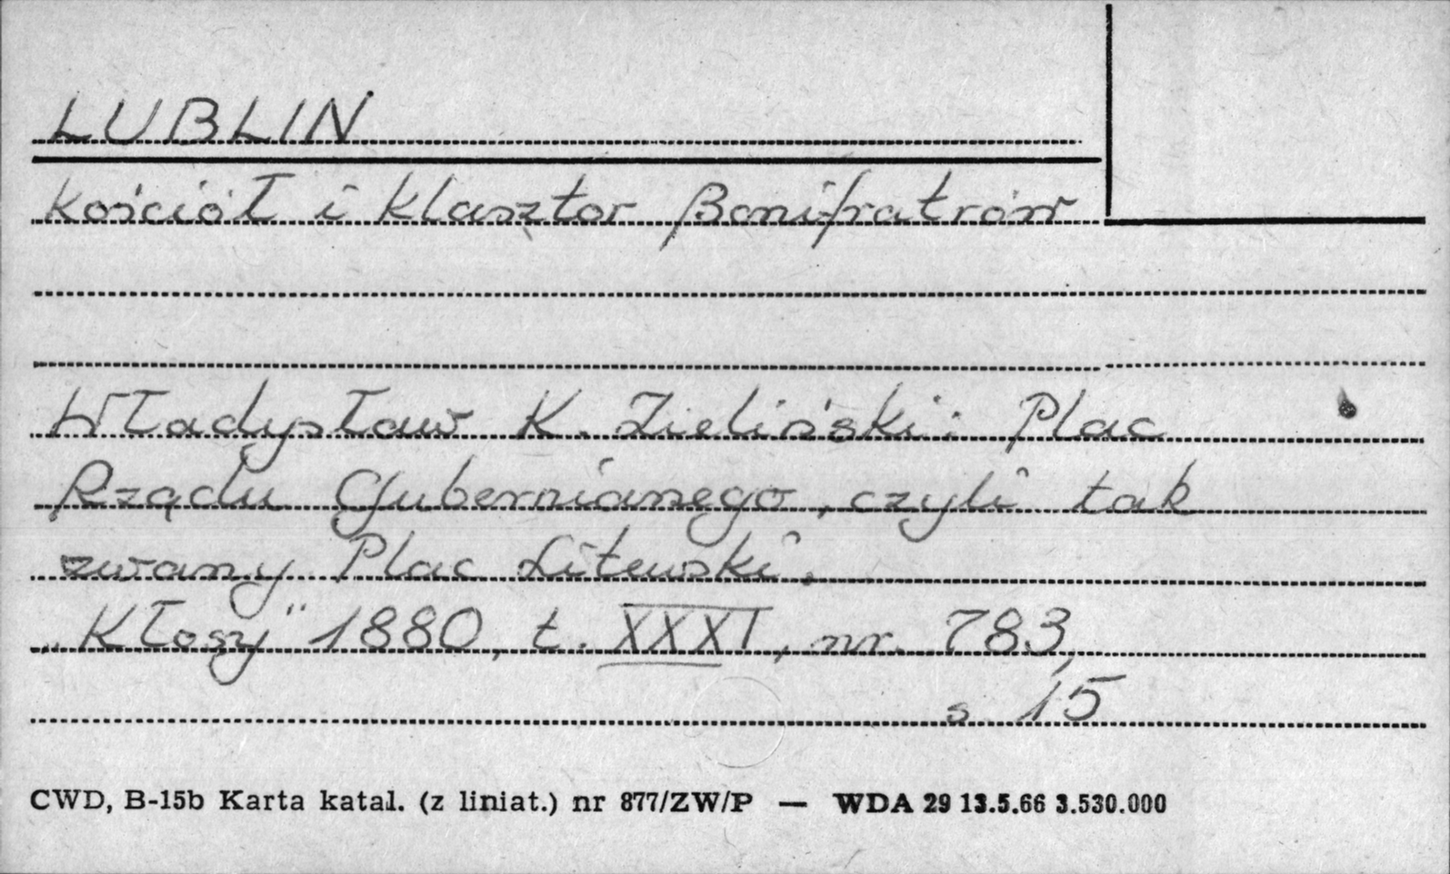 LUBLIN
kościół i klasztor Bonifratrów
Władysław K. Zieliński: Plac
Rządu Gubernianego, czyli tak
zwany Plac Litewski.
„Kłosy" 1880, t. XXXI, nr. 783,
s 15
CWD, B-15b Karta katal. (z liniat.) nr 877/ZW/P — WDA 29 13.5.66 3.530.000